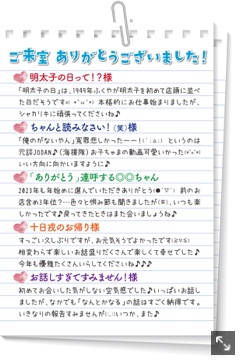 ご来室 ありがとうございました！
明太子の日って！？様
「明太子の日」は、1949年ふくやが明太子を初めて店頭に並べ
た日だそうです 本格的にお仕事始まりましたが、
シャカリキに頑張ってくださいね♪
ちゃんと読みなさい！（笑）様
「俺のがないやん」冤罪悲しかったーー！ というのは
冗談JODAN♪（海援隊）お子ちゃまの動画可愛いかった
いい方向に向かいますように♪
「ありがとう」連呼する◎◎ちゃん
2023年も年始めに選んでいただきありがとう 前のお
店含め3年位？…色々と恨み節も聞きましたが（笑）、いつも楽
しかったです♪戻ってきたときはまた会いましょうね♪
十日戎のお帰り様
すっごい久しぶりですが、お元気そうでよかったです
相変わらず楽しいお話盛りだくさんで楽しくて幸せでした♪
今年も優雅たくさんいらしてくださいね♪
お話しすぎてすみません！様
初めてお会いした気がしない空気感でした♪いっぱいお話し
ましたが、なかでも「なんとかなる」の話はすごく納得です。
いきなりの報告すみませんが いつか、また♪